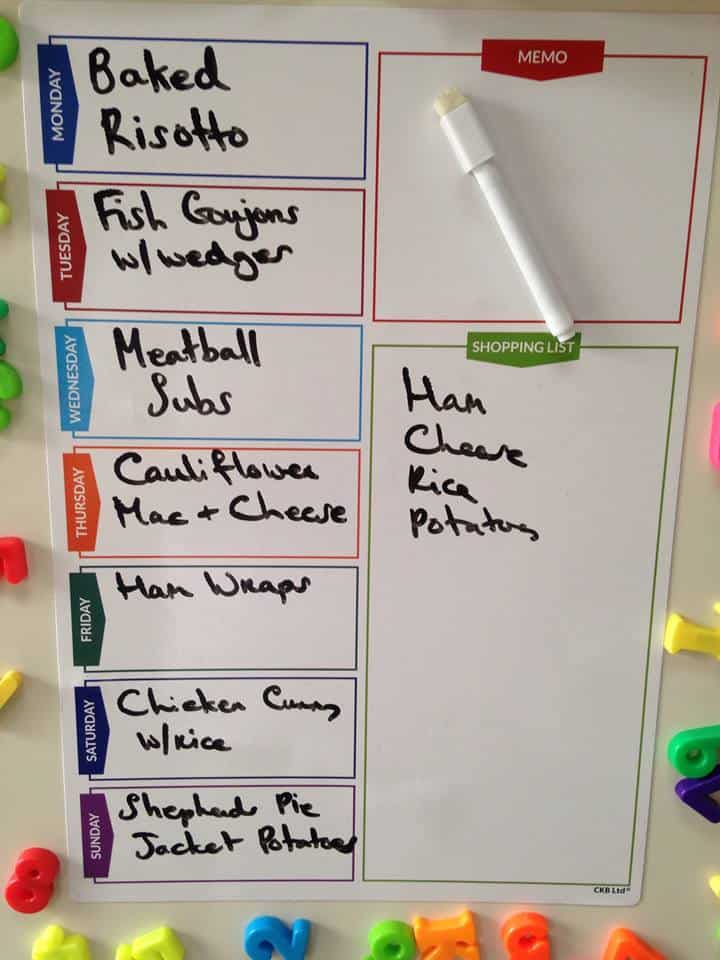 MONDAY
Baked
Risotto
TUESDAY
Fish Goujons
w/wedges
WEDNESDAY
Meatball
Subs
THURSDAY
Cauliflower
Mac + Cheese
FRIDAY
Ham Wraps
SATURDAY
Chicken Curry
W/Rice
SUNDAY
Shepherds Pie
Jacket Potatoes
MEMO
SHOPPING LIST
Ham
Cheese
Rice
Potatoes
CKB Ltd®